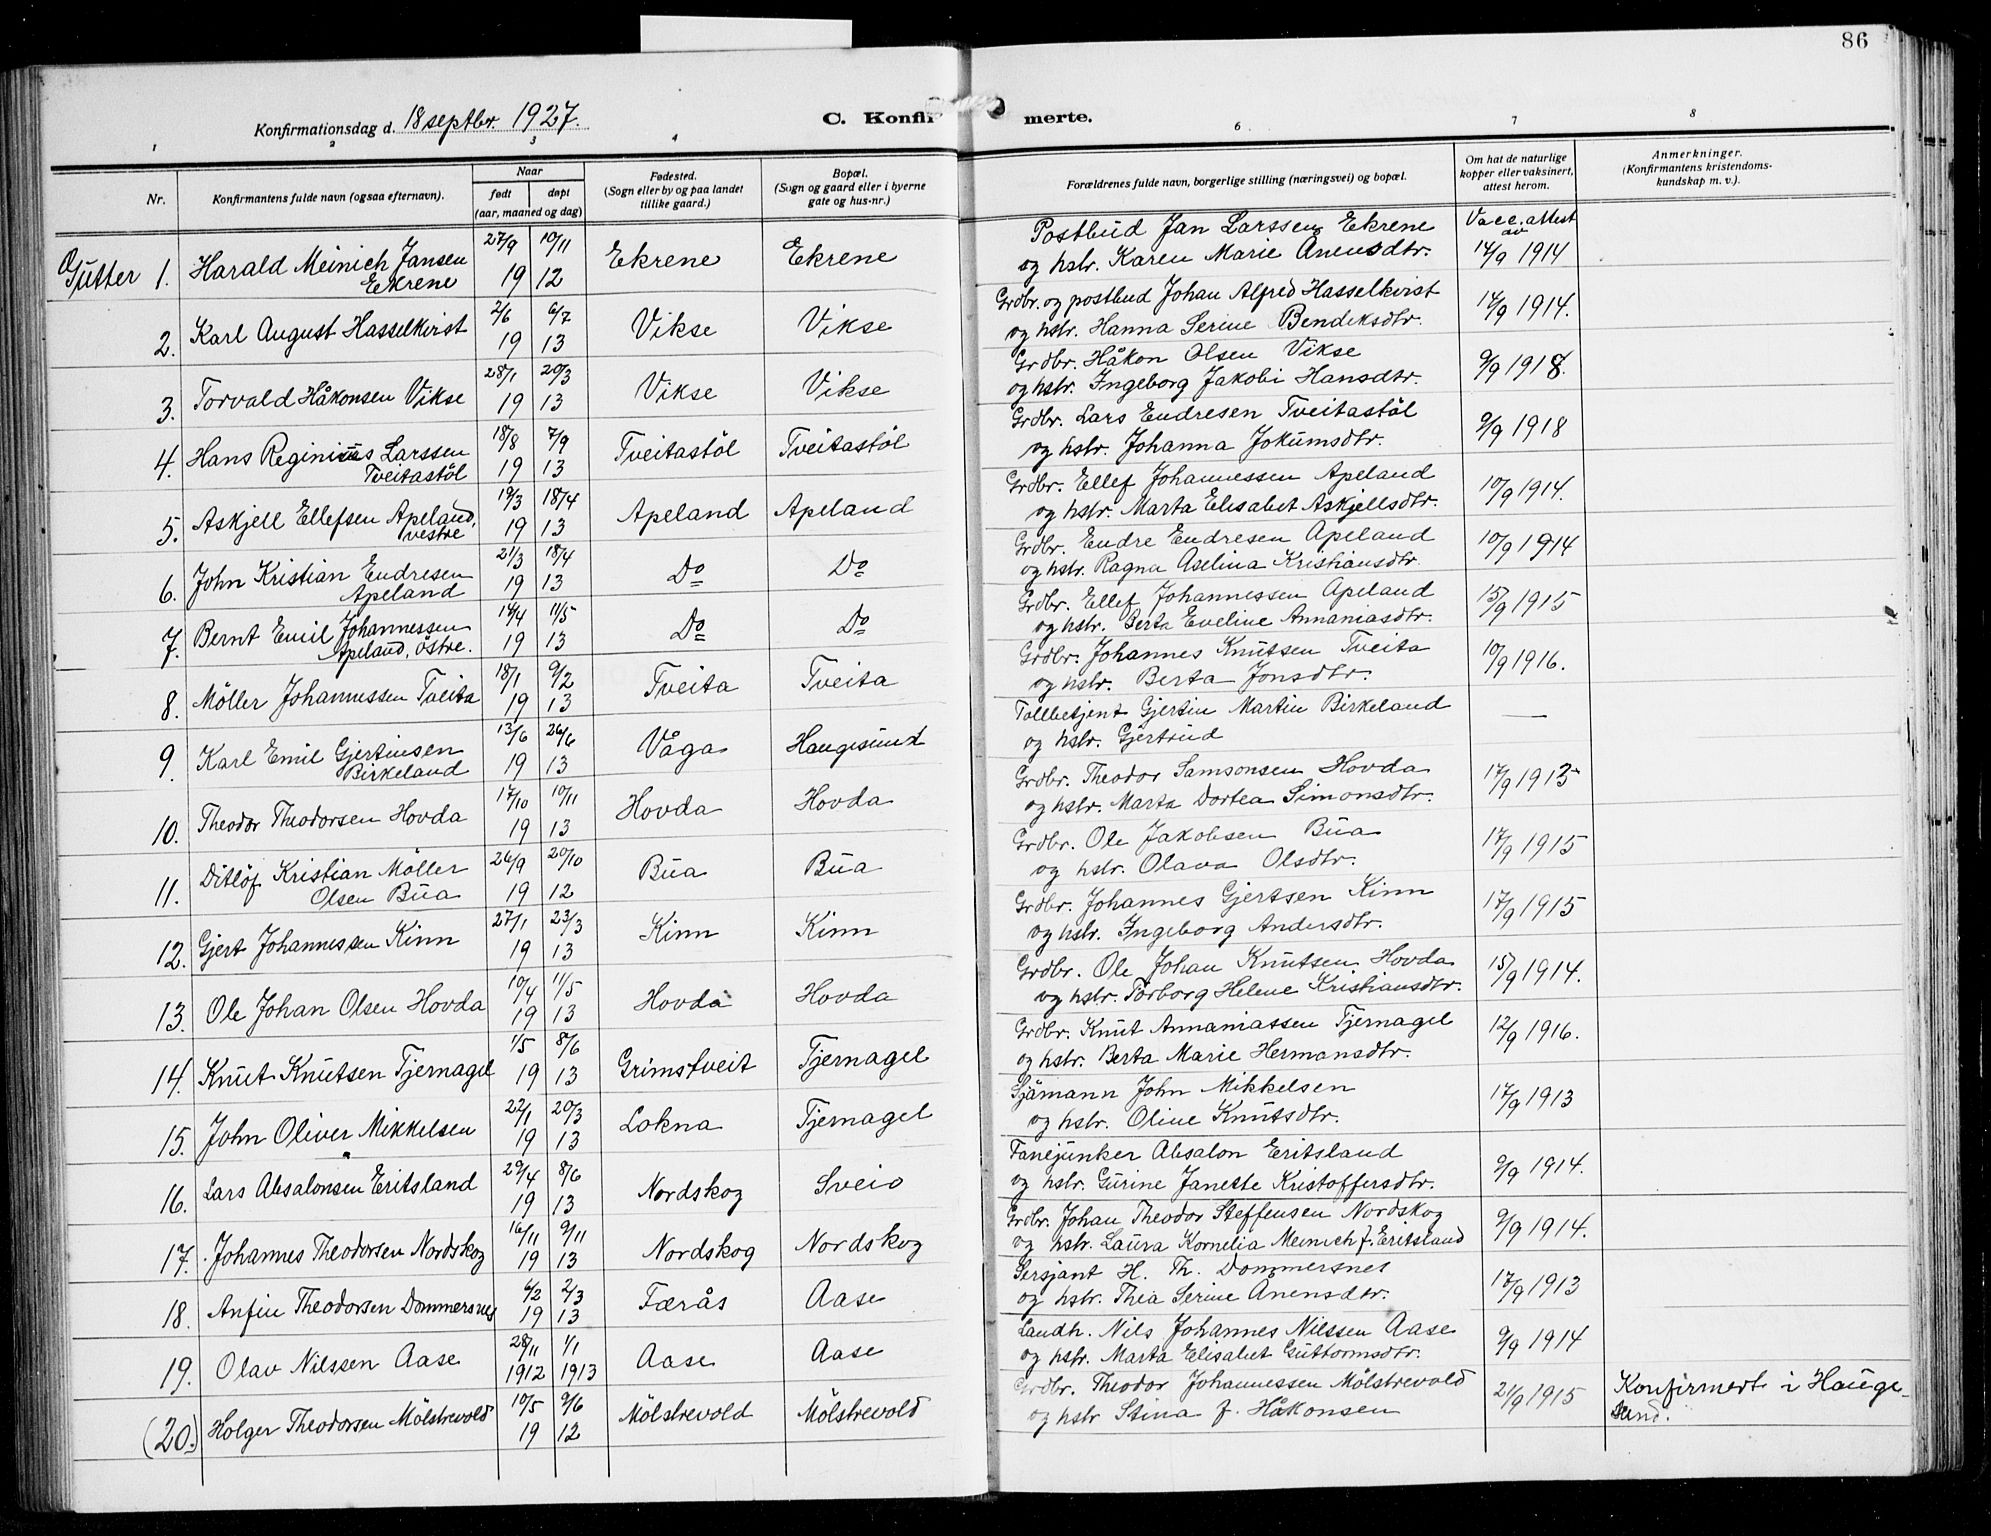 86
Konfirmationsdag d. 18 septbr. 1927.
C. Konfir merte.
1 2 3 4 6 7 8
Nr.
Konfirmantens fulde navn (ogsaa efternavn).
Naar
født døpt
(aar, maaned og dag)
Fødested.
(Sogn eller by og paa landet
tillike gaard.)
Bopæl.
(Sogn og gaard eller i byerne
gate og hus-nr.)
Forældrenes fulde navn, borgerlige stilling (næringsvei) og bopæl.
Om hat de naturlige
kopper eller vaksinert,
attest herom.
Anmerkninger.
(Konfirmantens kristendoms-
kundskap m. v.).
Gutter 1. Harald Meinich Jansen 27/9 10/11 Ekrene Ekrene Postbud Jan Larssen Ekrene Vacc. attest av
Ekrene 19 12 og hstr. Karen Marie Ånensdtr. 14/9 1914
2. Karl August Hasselkvist 2/6 6/7 Vikse Vikse Grdbr. og postbud Johan Alfred Hasselkvist 14/9 1914.
19 13 og hstr. Hanna Serine Bendiksdtr.
3. Torvald Håkonsen Vikse 28/1 20/3 Vikse Vikse Grdbr. Håkon Olsen Vikse 9/9 1918.
19 13 og hstr. Ingeborg Jakobi Hansdtr.
4. Hans Reginius Larssen 18/8 7/9 Tveitastöl Tveitastöl Grdbr. Lars Endresen Tveitastöl 9/9 1918
Tveitastöl 19 13 og hstr. Johanna Jokumsdtr.
5. Askjell Ellefsen Apeland, 19/3 18/4 Apeland Apeland Grdbr. Ellef Johannessen Apeland 10/9 1914.
vestre 19 13 og hstr. Marta Elisabet Askjellsdtr.
6. John Kristian Endresen 21/3 18/4 Do Do Grdbr. Endre Endresen Apeland 10/9 1914
Apeland 19 13 og hstr. Ragna Aselina Kristiansdtr.
7. Bernt Emil Johannessen 14/4 11/5 Do Do Grdbr. Ellef Johannessen Apeland 15/9 1915
Apeland, östre. 19 13 og hstr. Berta Eveline Annaniasdtr.
8. Möller Johannessen Tveita 18/1 9/2 Tveita Tveita Grdbr. Johannes Knutsen Tveita 10/9 1916.
19 13 og hstr. Berta Jonsdtr.
9. Karl Emil Gjertinsen 13/6 26/6 Våga Haugesund Tollbetjent Gjertin Martin Birkeland —
Birkeland 19 13 og hstr. Gjertrud
10. Theodor Theodorsen Hovda 17/10 10/11 Hovda Hovda Grdbr. Theodor Samsonsen Hovda 17/9 1913
19 13 og hstr. Marta Dortea Simonsdtr.
11. Ditlöf Kristian Möller 26/9 20/10 Bua Bua Grdbr. Ole Jakobsen Bua 17/9 1915
Olsen Bua 19 12 og hstr. Olava Olsdtr.
12. Gjert Johannessen Kinn 27/1 23/3 Kinn Kinn Grdbr. Johannes Gjertsen Kinn 17/9 1915
19 13 og hstr. Ingeborg Andersdtr.
13. Ole Johan Olsen Hovda 10/4 11/5 Hovda Hovda Grdbr. Ole Johan Knutsen Hovda 15/9 1914.
19 13 og hstr. Torborg Helene Kristiansdtr.
14. Knut Knutsen Tjernagel 1/5 8/6 Grimstveit Tjernagel Grdbr. Knut Annaniassen Tjernagel 12/9 1916.
19 13 og hstr. Berta Marie Hermansdtr.
15. John Oliver Mikkelsen 22/1 20/3 Lokna Tjernagel Sjömann John Mikkelsen 17/9 1913
19 13 og hstr. Oline Knutsdtr.
16. Lars Absalonsen Eritsland 29/4 8/6 Nordskog Sveio Fanejunker Absalon Eritsland 9/9 1914.
19 13 og hstr. Gurine Janette Kristoffersdtr.
17. Johannes Theodorsen Nordskog 16/11 9/11 Nordskog Nordskog Grdbr. Johan Theodor Steffensen Nordskog 9/9 1914.
19 13 og hstr. Laura Kornelia Meinich f. Eritsland
18. Anfin Theodorsen Dommersnes 6/2 2/3 Færås Aase Sersjant H. Th. Dommersnes 17/9 1913
19 13 og hstr. Thea Serine Ånensdtr.
19. Olav Nilssen Aase 28/11 1/1 Aase Aase Landh. Nils Johannes Nilssen Aase 9/9 1914
1912 1913 og hstr. Marta Elisabet Guttormsdtr.
(20.) Holger Theodorsen Mölstrevold 10/5 9/6 Mölstrevold Mölstrevold Grdbr. Theodor Johannessen Mölstrevold 21/9 1915 Konfirmert i Hauge-
19 12 og hstr Stina f. Håkonsen sund.